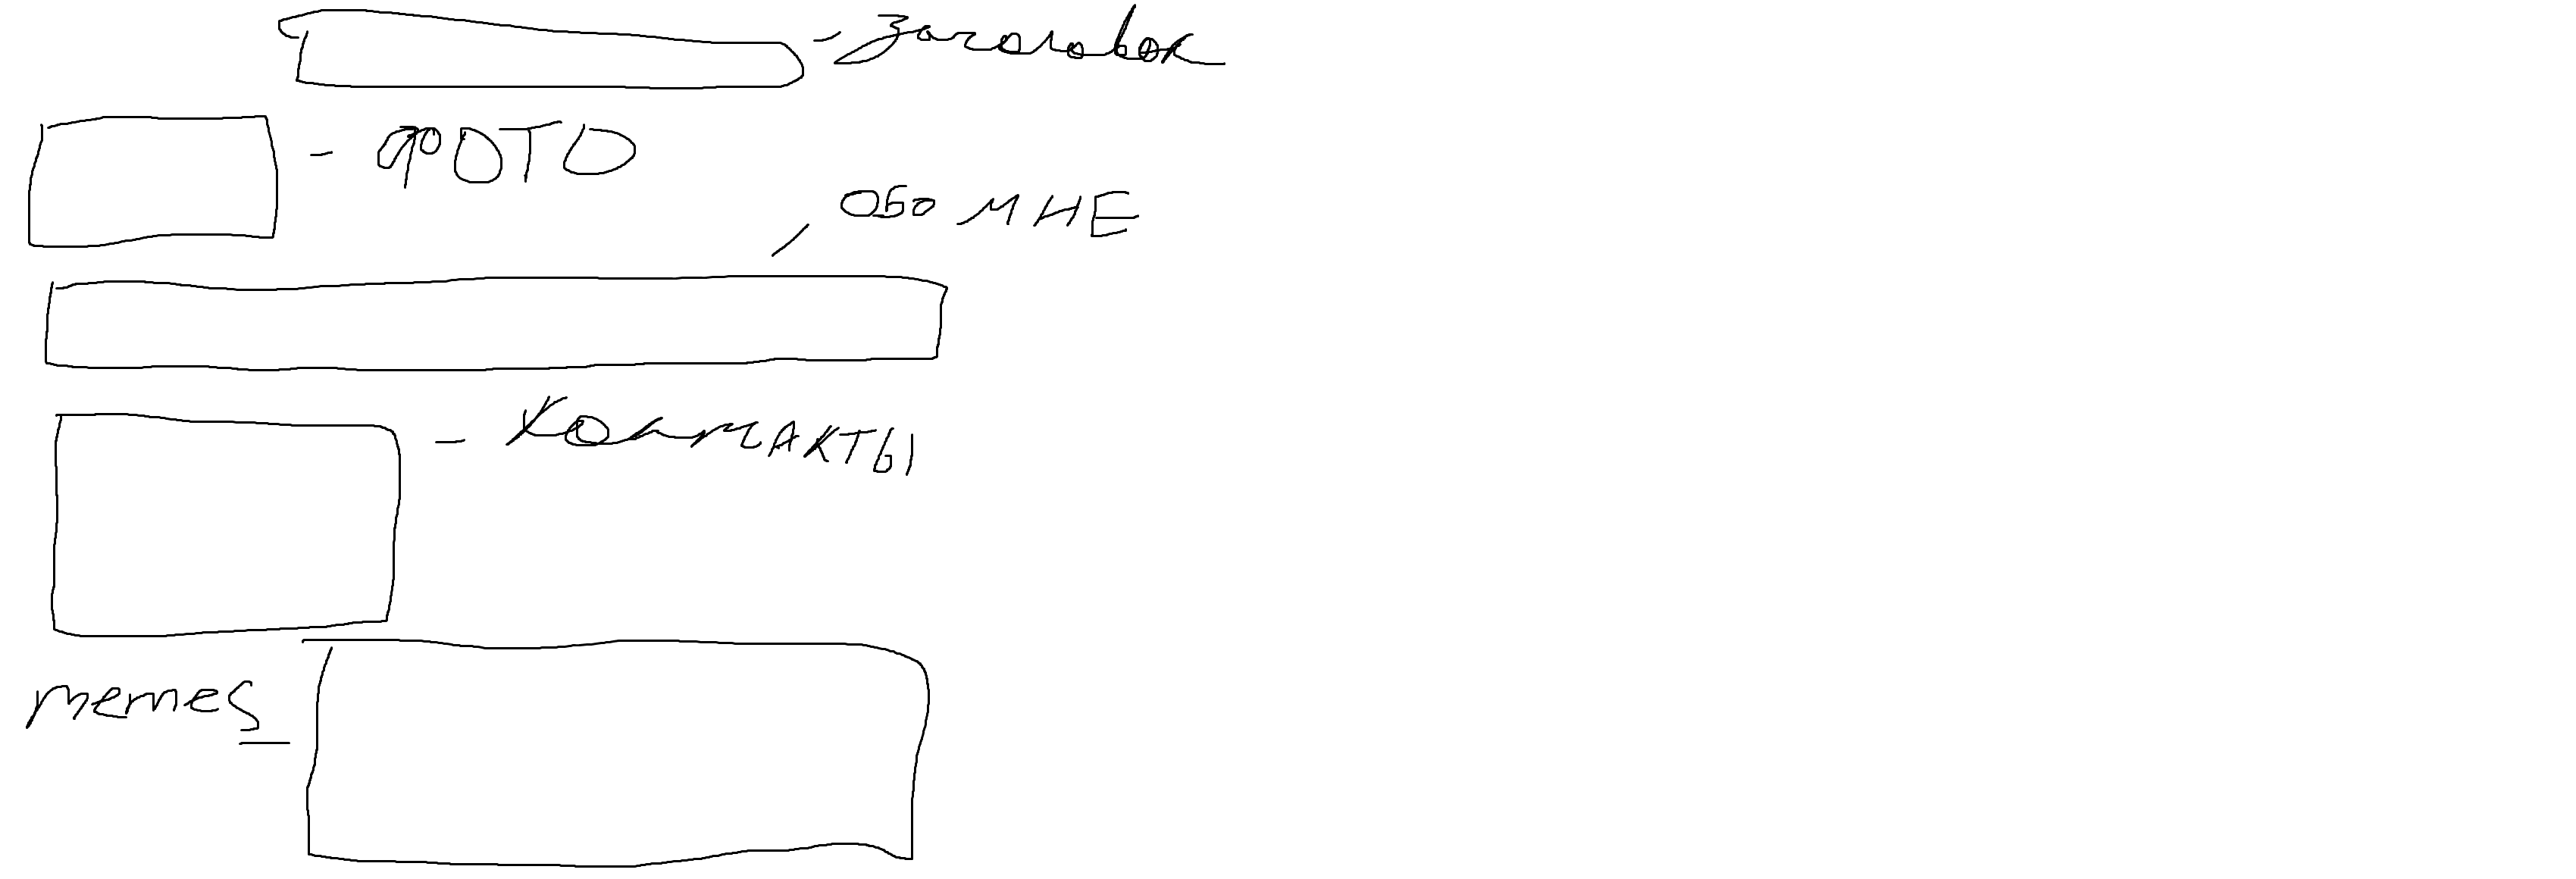 - заголовок
- фОТО
ОБО МНЕ
- КонтАКТЫ
memes